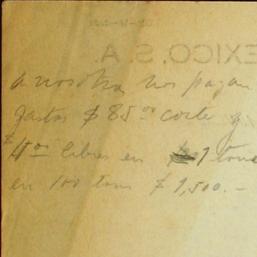 EXICO, S. A.
a nosotros nos pagan
gastos $85.00 corte y
$15.00 libres en 1 tone
en 100 tons $ 1,500.-